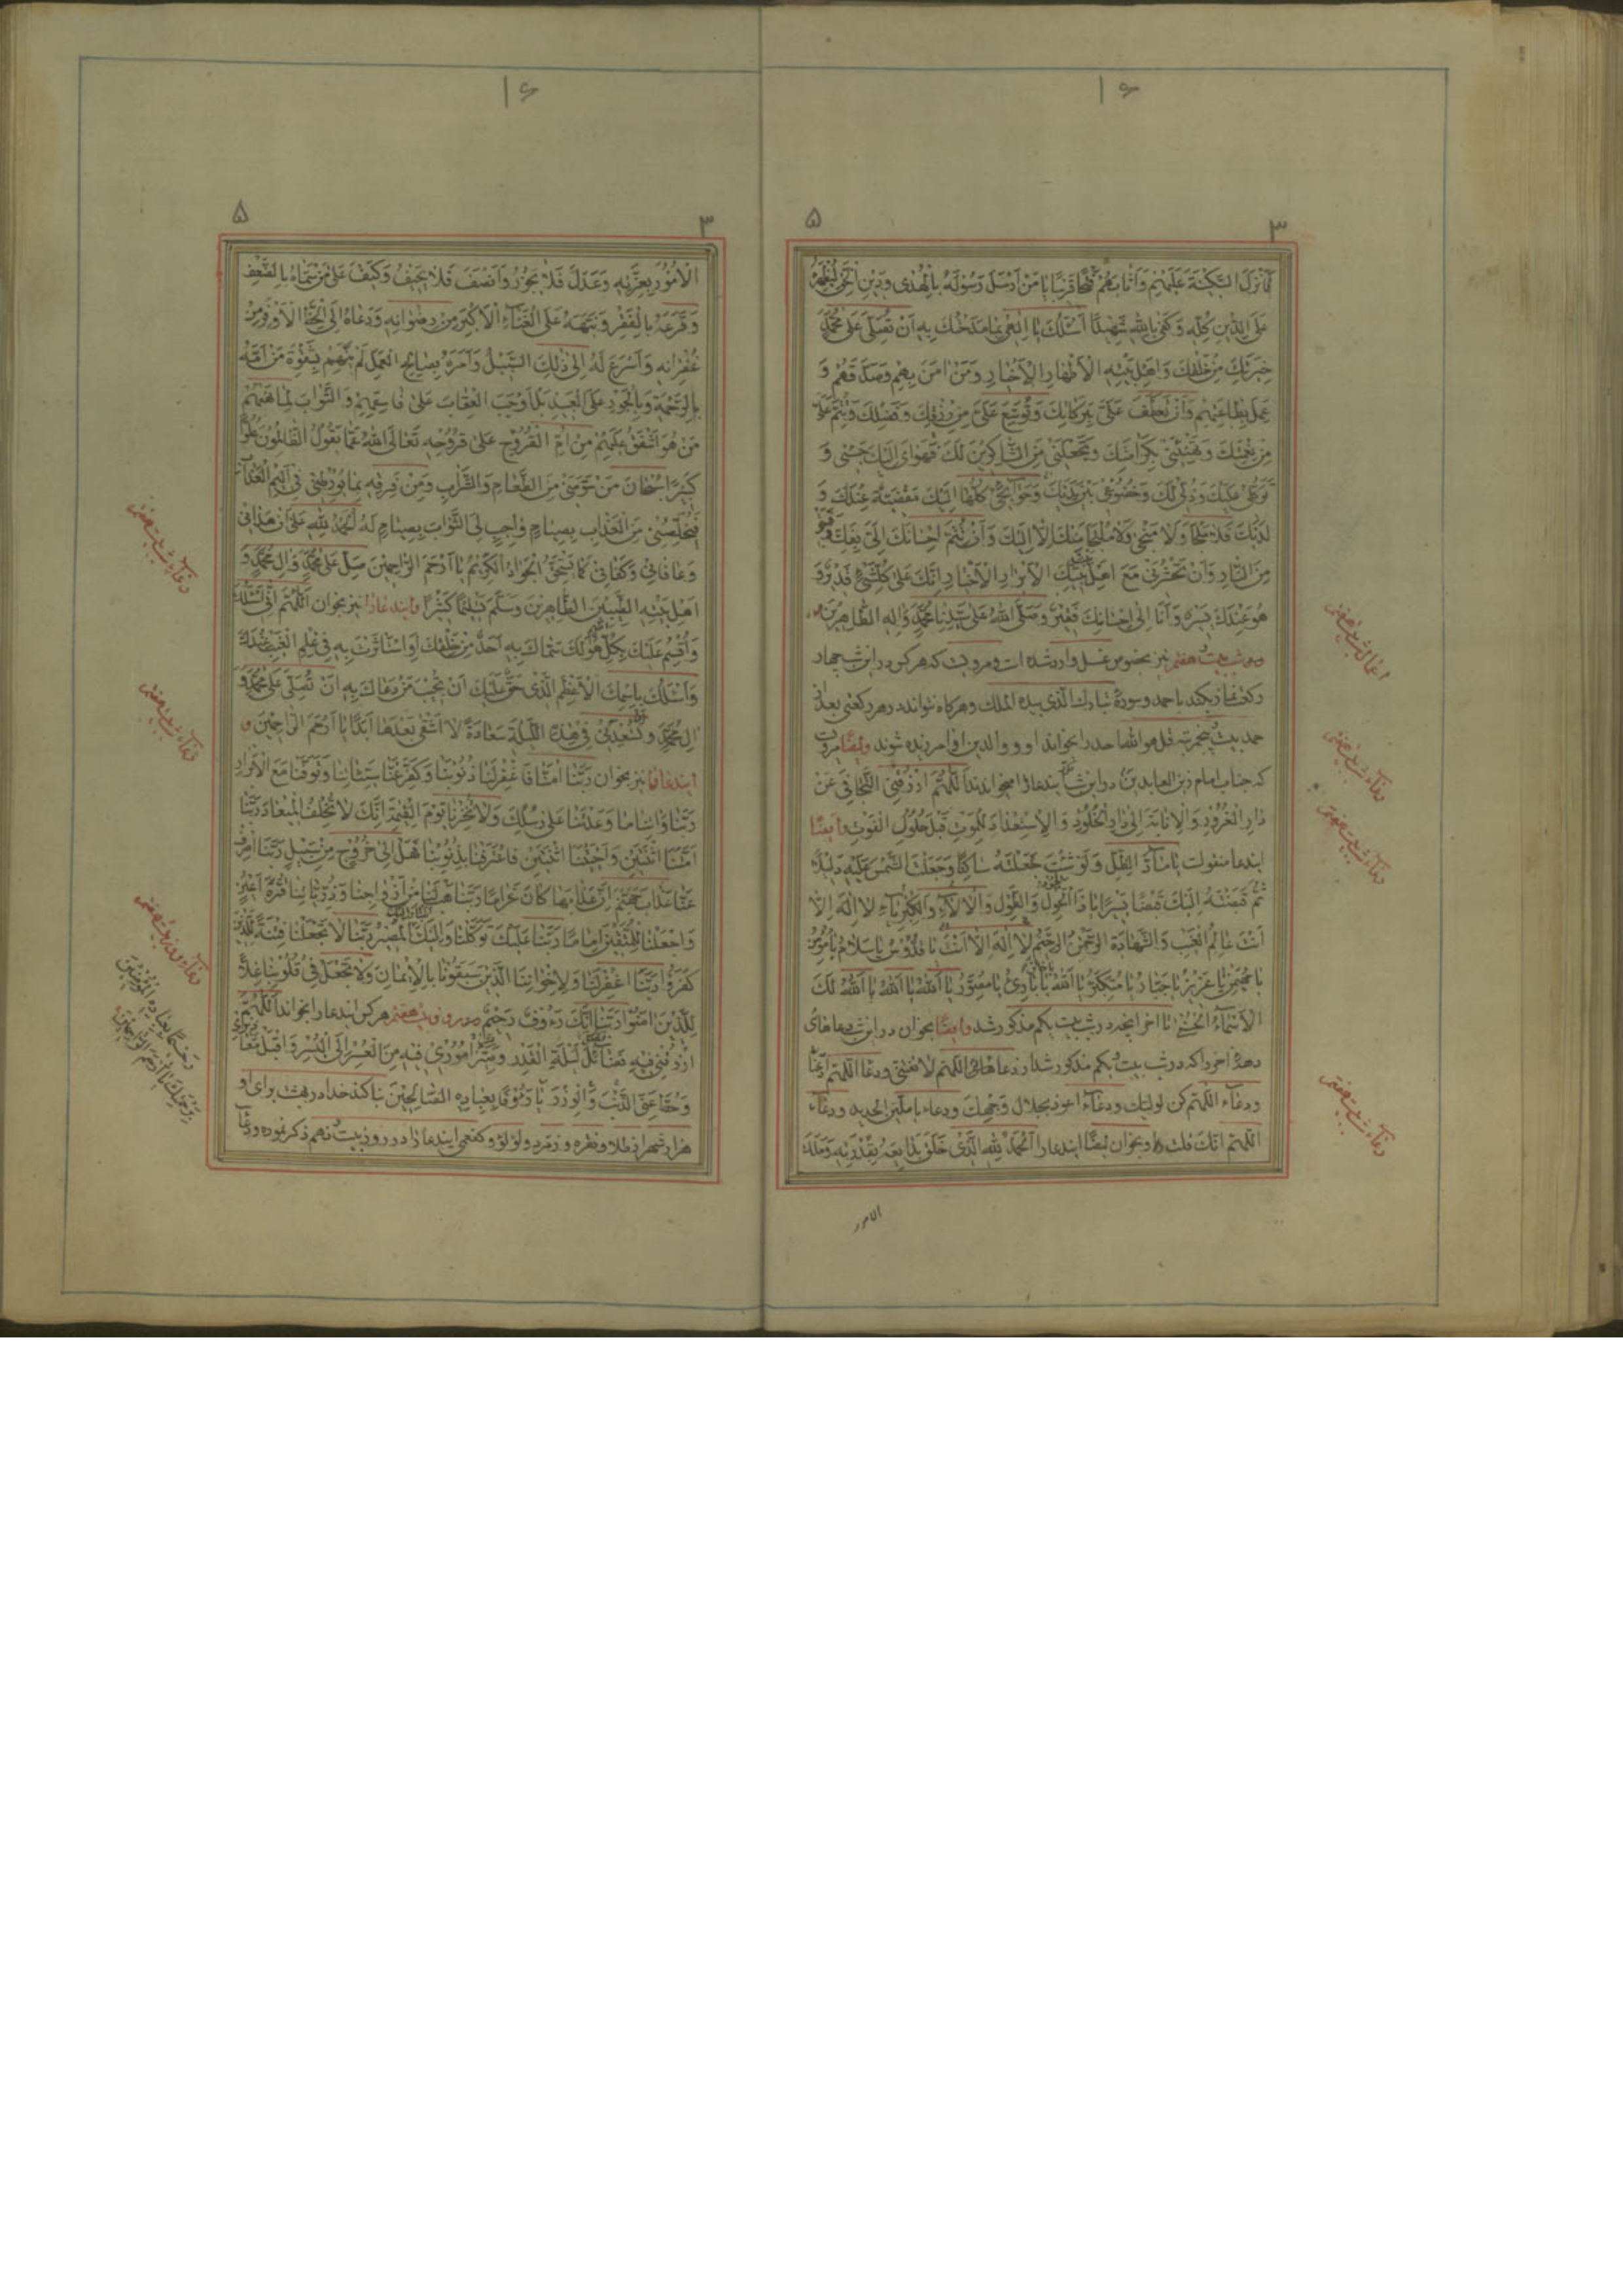 ۱۶
۵ ۳
فَاَنْزَلَ السَّكِينَةَ عَلَيْهِمْ وَاَثَابَهُمْ فَتْحًا قَرِيبًا يَا مَنْ اَرْسَلَ رَسُولَهُ بِالْهُدٰى وَدِينِ الْحَقِّ لِيُظْهِرَهُ
عَلَى الدِّينِ كُلِّهِ وَكَفٰى بِاللّٰهِ شَهِيدًا اَسْئَلُكَ يَا اِلٰهِى بِمَا مَدَحْتُكَ بِهِ اَنْ تُصَلِّىَ عَلٰى مُحَمَّدٍ
خِيَرَتِكَ مِنْ خَلْقِكَ وَاَهْلِ بَيْتِهِ الْاَطْهَارِ الْاَخْيَارِ وَمَنْ اٰمَنَ بِهِمْ وَصَدَّقَهُمْ وَ
عَمِلَ بِطَاعَتِهِمْ وَاَنْ تَعْطِفَ عَلَىَّ بِبَرَكَاتِكَ وَتُوَسِّعَ عَلَىَّ مِنْ رِزْقِكَ وَفَضْلِكَ
مِنْ نِعْمَتِكَ وَكَرَامَتِكَ وَتَجْعَلَنِى مِنَ الشَّاكِرِينَ لَكَ فَهَوَاىَ اِلَيْكَ وَ
عَلَيْكَ وَذُلِّى لَكَ وَخُضُوعِى بَيْنَ يَدَيْكَ وَحَوَائِجِى كُلُّهَا اِلَيْكَ مَقْضِيَّةٌ عِنْدَكَ وَ
لَدَيْكَ فَلَا مَلْجَأَ وَلَا مَنْجٰى وَلَا مُلْتَجَأَ مِنْكَ اِلَّا اِلَيْكَ وَاَنْ تُتِمَّ اِحْسَانَكَ اِلَىَّ
مِنَ النَّارِ وَاَنْ تَحْشُرَنِى مَعَ اَهْلِ الْاَبْرَارِ الْاَخْيَارِ اِنَّكَ عَلٰى كُلِّ شَىْءٍ قَدِيرٌ وَ
هُوَ عِنْدَكَ يَسِيرٌ وَاَنَا اِلٰى اِحْسَانِكَ فَقِيرٌ وَصَلَّى اللّٰهُ عَلٰى سَيِّدِنَا مُحَمَّدٍ وَاٰلِهِ الطَّاهِرِينَ
و در شب بيست هفتم نيز بخصوص غسل وارد شده است و مرويست كه هر كس در اين شب چهار
ركعت نماز بكند باحمد و سورۀ تبارك الذى بيده الملك و هرگاه نتواند در هر ركعتى بعد از
حمد بيست پنجمرتبه قل هو الله احد را بخواند او و والدين او امرزيده شوند و ايضًا مرويست
كه جناب امام زين العابدين در اين شب ايندعا را ميخواندند اَللّٰهُمَّ ارْزُقْنِى التَّجَافِىَ عَنْ
دَارِ الْغُرُورِ وَالْاِنَابَةَ اِلٰى دَارِ الْخُلُودِ وَالْاِسْتِعْدَادَ لِلْمَوْتِ قَبْلَ حُلُولِ الْفَوْتِ و ايضًا
ايندعا منقولست يَا مَادَّ الظِّلِّ وَلَوْ شِئْتَ جَعَلْتَهُ سَاكِنًا وَجَعَلْتَ الشَّمْسَ عَلَيْهِ دَلِيلًا
ثُمَّ قَبَضْتَهُ اِلَيْكَ قَبْضًا يَسِيرًا يَا ذَا الْحَوْلِ وَالطَّوْلِ وَالْاٰلَاءِ وَالْكِبْرِيَاءِ لَا اِلٰهَ اِلَّا
اَنْتَ عَالِمُ الْغَيْبِ وَالشَّهَادَةِ الرَّحْمٰنُ الرَّحِيمُ لَا اِلٰهَ اِلَّا اَنْتَ يَا قُدُّوسُ يَا سَلَامُ يَا مُؤْمِنُ
يَا مُهَيْمِنُ يَا عَزِيزُ يَا جَبَّارُ يَا مُتَكَبِّرُ يَا اَللّٰهُ يَا بَارِئُ يَا مُصَوِّرُ يَا اَللّٰهُ يَا اَللّٰهُ يَا اَللّٰهُ لَكَ
الْاَسْمَاءُ الْحُسْنٰى تا اخر انچه در شب بيست يكم مذكور شد و ايضًا بخوان در اين شب دعاهاى
دهۀ اخر را كه در شب بيست يكم مذكور شد از دعاهاى اللهم لا تفتنى و دعا اللهم
و دعاء اللهم كن لوليك و دعاء اعوذ بجلال وجهك و دعاء يا ملين الحديد و دعاء
اللهم انك قلت را و بخوان ايضًا ايندعا را اَلْحَمْدُ لِلّٰهِ الَّذِى خَلَقَ بِقُدْرَتِهِ وَمَلَكَ
الامور
اعمال شب بيست هفتم
دعاء شب بيست هفتم
دعاء شب بيست هفتم
دعاء شب بيست هفتم
۱۶
۵ ۳
الْاُمُورَ بِعِزَّتِهِ وَعَدَلَ فَلَا يَجُورُ وَاَنْصَفَ فَلَا يَحِيفُ وَكَيْفَ عَلٰى مَنْ سَمَّاهُ بِالضَّعْفِ
وَقَرَّعَهُ بِالْفَقْرِ وَنَبَّهَهُ عَلَى الْغَنَاءِ الْاَكْبَرِ مِنْ رِضْوَانِهِ وَدَعَاهُ اِلَى الْحَظِّ الْاَوْفَرِ مِنْ
غُفْرَانِهِ وَاَسْرَعَ لَهُ اِلٰى ذٰلِكَ السَّبِيلَ وَاَمَرَهُ بِصَالِحِ الْعَمَلِ
بِالرَّحْمَةِ وَبِالْجُودِ عَلَى الْعَبِيدِ بَلْ اَوْجَبَ الْعِقَابَ عَلٰى وَالثَّوَابَ
مَنْ هُوَ اَشْفَقُ عَلَيْهِمْ مِنْ اُمِّ الْفُرُوخِ عَلٰى تَعَالَى اللّٰهُ عَمَّا يَقُولُ الظَّالِمُونَ عُلُوًّا
كَبِيرًا سُبْحَانَ مَنْ مِنَ الطَّعَامِ وَالشَّرَابِ وَمَنْ فِى اَلِيمِ الْعَذَابِ
مِنَ الْعَذَابِ بِصِيَامٍ لَهُ اَلْحَمْدُ لِلّٰهِ عَلٰى اَنْ هَدَانِى
وَعَافَانِى وَكَفَانِى كَمَا يَسْتَحِقُّ الْجَوَادُ الْكَرِيمُ يَا اَرْحَمَ الرَّاحِمِينَ صَلِّ عَلٰى مُحَمَّدٍ وَاٰلِ مُحَمَّدٍ وَ
اَهْلِ بَيْتِهِ الطَّيِّبِينَ الطَّاهِرِينَ وَسَلِّمْ تَسْلِيمًا كَثِيرًا و ايندعا را نيز بخوان اَللّٰهُمَّ اِنِّى اَسْئَلُكَ
وَاُقْسِمُ عَلَيْكَ بِكُلِّ اسْمٍ هُوَ لَكَ سَمَّاكَ بِهِ اَحَدٌ مِنْ خَلْقِكَ اَوِ اسْتَأْثَرْتَ بِهِ فِى عِلْمِ الْغَيْبِ عِنْدَكَ
وَاَسْئَلُكَ بِاسْمِكَ الْاَعْظَمِ الَّذِى حَقٌّ عَلَيْكَ اَنْ تُجِيبَ مَنْ دَعَاكَ بِهِ اَنْ تُصَلِّىَ عَلٰى مُحَمَّدٍ وَ
اٰلِ مُحَمَّدٍ وَتُسْعِدَنِى فِى هٰذِهِ اللَّيْلَةِ سَعَادَةً لَا اَشْقٰى بَعْدَهَا اَبَدًا يَا اَرْحَمَ الرَّاحِمِينَ و
ايندعا را نيز بخوان رَبَّنَا اٰمَنَّا فَاغْفِرْ لَنَا ذُنُوبَنَا وَكَفِّرْ عَنَّا سَيِّئَاتِنَا وَتَوَفَّنَا مَعَ الْاَبْرَارِ
رَبَّنَا وَاٰتِنَا مَا وَعَدْتَنَا عَلٰى رُسُلِكَ وَلَا تُخْزِنَا يَوْمَ الْقِيٰمَةِ اِنَّكَ لَا تُخْلِفُ الْمِيعَادَ رَبَّنَا
اَمَتَّنَا اثْنَتَيْنِ وَاَحْيَيْتَنَا اثْنَتَيْنِ فَاعْتَرَفْنَا بِذُنُوبِنَا فَهَلْ اِلٰى خُرُوجٍ مِنْ سَبِيلٍ رَبَّنَا اصْرِفْ
عَنَّا عَذَابَ جَهَنَّمَ اِنَّ عَذَابَهَا كَانَ غَرَامًا رَبَّنَا هَبْ لَنَا مِنْ اَزْوَاجِنَا وَذُرِّيَّاتِنَا قُرَّةَ اَعْيُنٍ
وَاجْعَلْنَا لِلْمُتَّقِينَ اِمَامًا رَبَّنَا عَلَيْكَ تَوَكَّلْنَا وَاِلَيْكَ الْمَصِيرُ رَبَّنَا لَا تَجْعَلْنَا فِتْنَةً لِلَّذِينَ
كَفَرُوا رَبَّنَا اغْفِرْ لَنَا وَلِاِخْوَانِنَا الَّذِينَ سَبَقُونَا بِالْاِيمَانِ وَلَا تَجْعَلْ فِى قُلُوبِنَا غِلًّا
لِلَّذِينَ اٰمَنُوا رَبَّنَا اِنَّكَ رَءُوفٌ رَحِيمٌ و در روز بيست هفتم هر كس ايندعا را بخواند اَللّٰهُمَّ
ارْزُقْنِى فِيهِ فَضْلَ لَيْلَةِ الْقَدْرِ وَصَيِّرْ اُمُورِى فِيهِ مِنَ الْعُسْرِ اِلَى الْيُسْرِ وَاقْبَلْ مَعَاذِيرِى
وَحُطَّ عَنِّى الذَّنْبَ وَالْوِزْرَ يَا رَءُوفًا بِعِبَادِهِ الصَّالِحِينَ بنا كند خدا در بهشت براى او
هزار شهر از طلا و نقره و زمرد و لؤلؤ و كفعمى ايندعا را در روز بيست نهم ذكر نموده و دعا
دعاء شب بيست هفتم
دعاء شب بيست هفتم
دعاء روز بيست هفتم
رَحِيمًا بِعِبَادِهِ الْمُؤْمِنِينَ
بِرَحْمَتِكَ يَا اَرْحَمَ الرَّاحِمِينَ